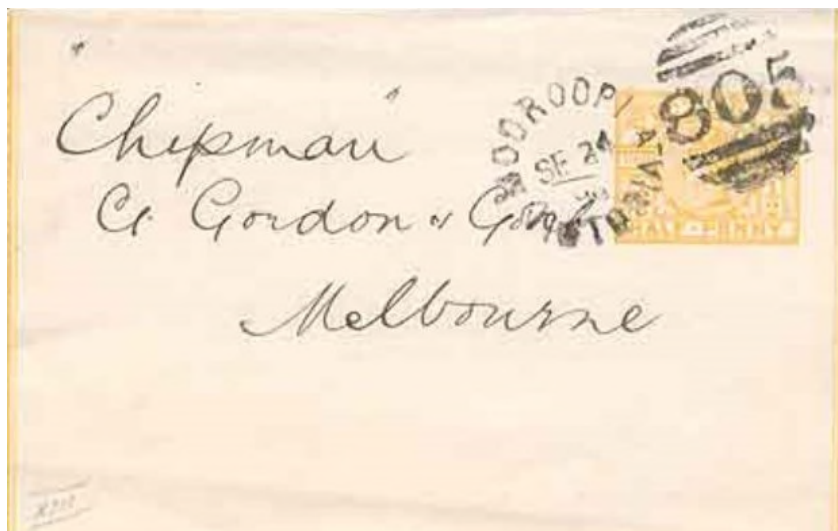 "Chipman"
C/o Gordon & Gotch
Melbourne
MOOROOPNA-VICTORIA
SE 24
805
HALF-PENNY